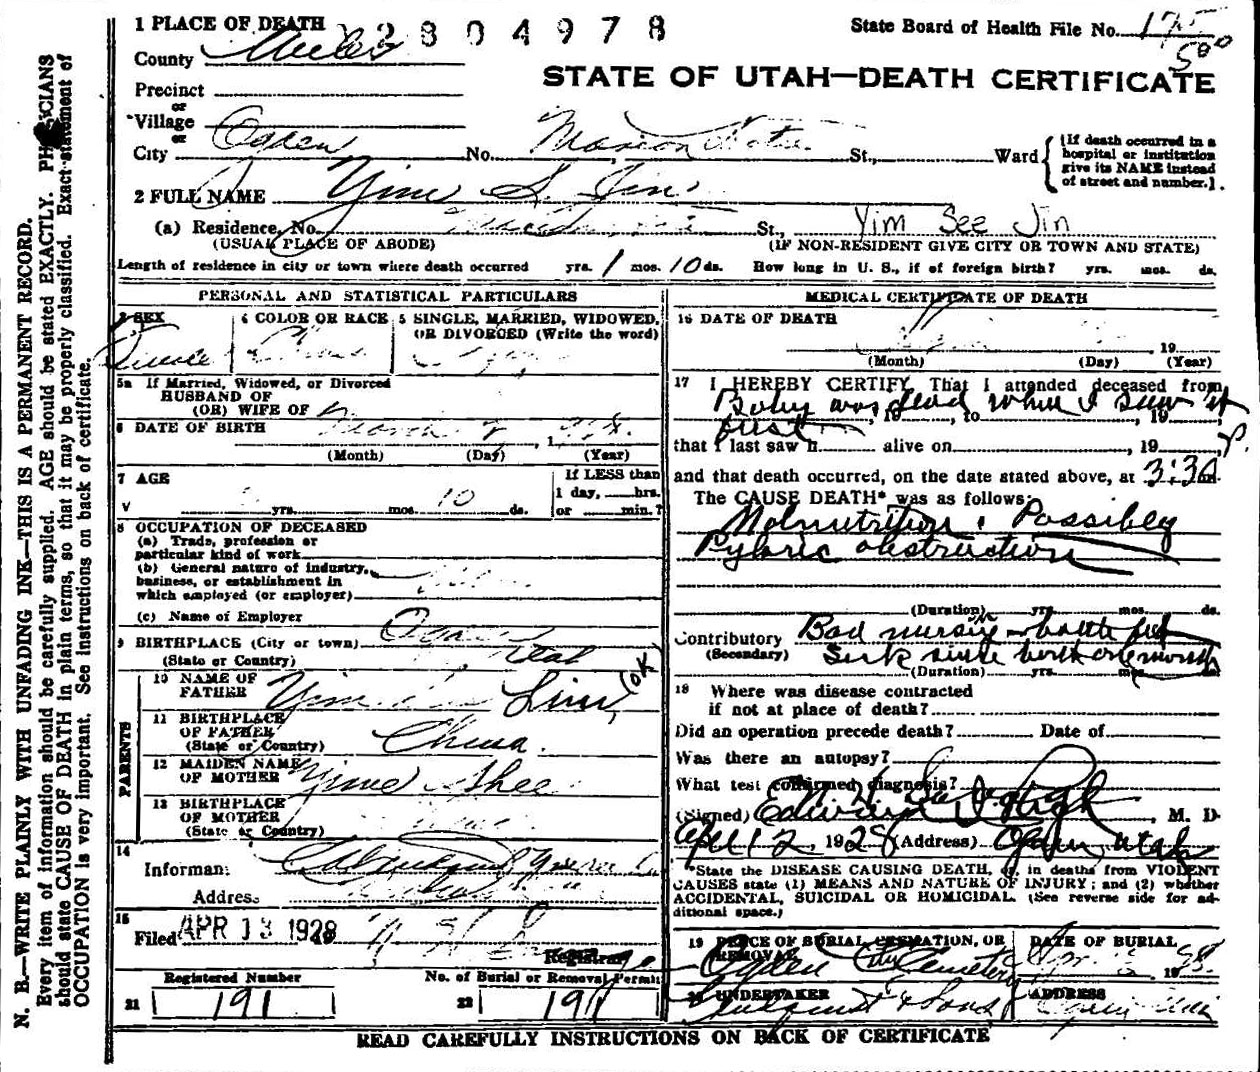 1 PLACE OF DEATH 2804978
State Board of Health File No. 175
500
County
STATE OF UTAH—DEATH CERTIFICATE
Precinct
or
Village
or
City Ogden No. Marion Hotel St., Ward
(If death occurred in a hospital or institution give its NAME instead of street and number.)
2 FULL NAME Yim S. Jin
(a) Residence, No. St., Yim See Jin
(USUAL PLACE OF ABODE) (IF NON-RESIDENT GIVE CITY OR TOWN AND STATE)
Length of residence in city or town where death occurred yrs. 1 mos. 10 ds. How long in U. S., if of foreign birth? yrs. mos. ds.
PERSONAL AND STATISTICAL PARTICULARS
3 SEX 4 COLOR OR RACE 5 SINGLE, MARRIED, WIDOWED, OR DIVORCED (Write the word)
5a If Married, Widowed, or Divorced
HUSBAND OF
(OR) WIFE OF
6 DATE OF BIRTH March
(Month) (Day) (Year)
7 AGE yrs. mos. 10 ds.
If LESS than
1 day, hrs.
or min.?
8 OCCUPATION OF DECEASED
(a) Trade, profession or
particular kind of work
(b) General nature of industry,
business, or establishment in
which employed (or employer)
(c) Name of Employer
9 BIRTHPLACE (City or town) Ogden
(State or Country) Utah
PARENTS
10 NAME OF FATHER Yim Linn (OK)
11 BIRTHPLACE OF FATHER (State or Country) China.
12 MAIDEN NAME OF MOTHER Yime Shee
13 BIRTHPLACE OF MOTHER (State or Country)
14
Informant
Address
15
Filed APR 13 1928
Registrar
Registered Number No. of Burial or Removal Permit
21 191 22 191
MEDICAL CERTIFICATE OF DEATH
16 DATE OF DEATH
19
(Month) (Day) (Year)
17 I HEREBY CERTIFY, That I attended deceased from
Baby was dead when I saw it
, 19 , to , 19
first
that I last saw h alive on , 19
and that death occurred, on the date stated above, at 3:30 P. m.
The CAUSE DEATH* was as follows:
Malnutrition. Possibly
Pyloric obstruction
(Duration) yrs. mos. ds.
Contributory Bad nursing - bottle fed
(Secondary) Sick since birth one month
(Duration) yrs. mos. ds.
18 Where was disease contracted
if not at place of death?
Did an operation precede death? Date of
Was there an autopsy?
What test confirmed diagnosis?
(Signed) Edward , M. D.
April 12, 1928 (Address) Ogden, Utah
*State the DISEASE CAUSING DEATH, or, in deaths from VIOLENT
CAUSES state (1) MEANS AND NATURE OF INJURY; and (2) whether
ACCIDENTAL, SUICIDAL OR HOMICIDAL. (See reverse side for ad-
ditional space.)
19 PLACE OF BURIAL, CREMATION, OR REMOVAL DATE OF BURIAL
Ogden City Cemetery
20 UNDERTAKER ADDRESS
& Sons
READ CAREFULLY INSTRUCTIONS ON BACK OF CERTIFICATE
N. B.—WRITE PLAINLY WITH UNFADING INK—THIS IS A PERMANENT RECORD.
Every item of information should be carefully supplied. AGE should be stated EXACTLY. PHYSICIANS
should state CAUSE OF DEATH in plain terms, so that it may be properly classified. Exact statement of
OCCUPATION is very important. See instructions on back of certificate.